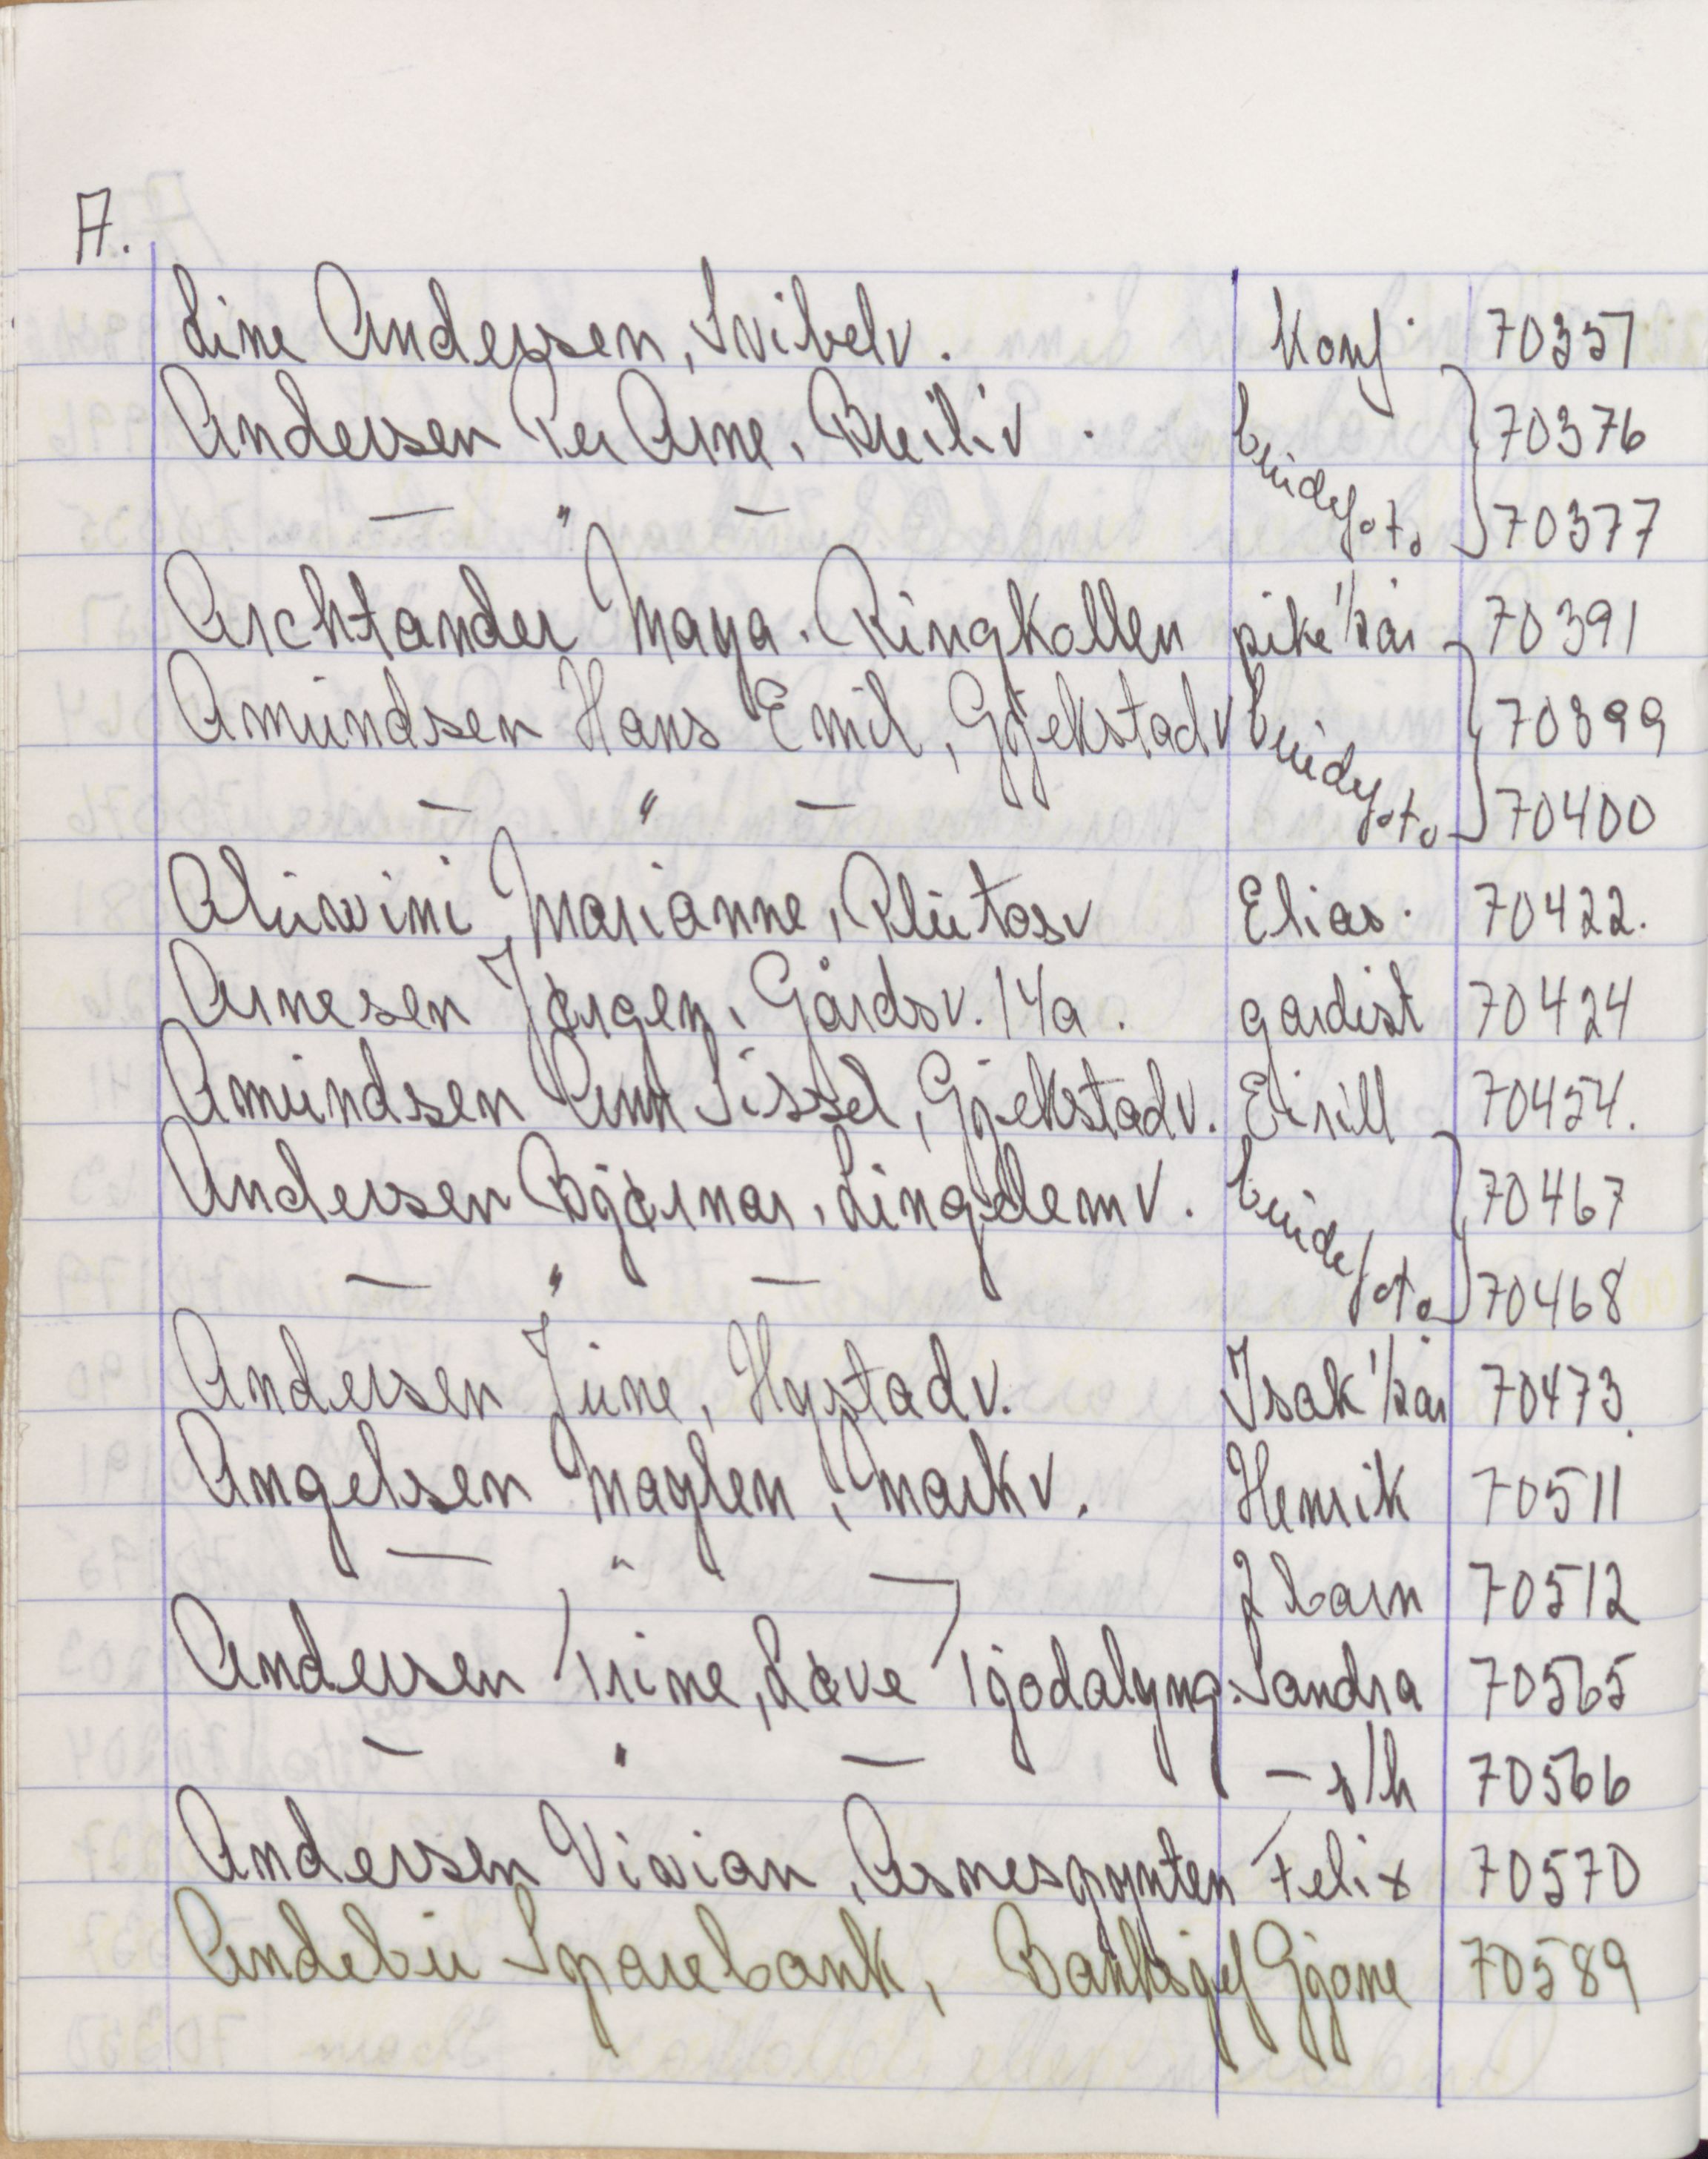 A.
Line Andersen, Svibelv. Konf. 70357
Andersen Per Arne. Breiliv. brudefoto 70376
— " — 70377
Archtander Maya. Ringkollen pike 1/2 år 70391
Amundsen Hans Emil, Gjekstadv brudefoto 70399
— " — 70400
Aluwini Marianne, Plutosv Elias. 70422.
Arnesen Jørgen, Gårdsv. 14a. gardist 70424
Amundsen Ann Sissel, Gjekstadv. Eirill 70454.
Andersen Bjørnar, Lingelemv. brudefoto 70467
— " — 70468
Andersen June, Hystadv. Isak 1/2 år 70473.
Angelsen Maylen, Markv. Henrik 70511
— " — 2 barn 70512
Andersen Trine, Løve Tjodalyng. Sandra 70565
— " — — s/h 70566
Andersen Vivian, Asnespynten Felix 70570
Andebu Sparebank, Banksjef Gjone 70589